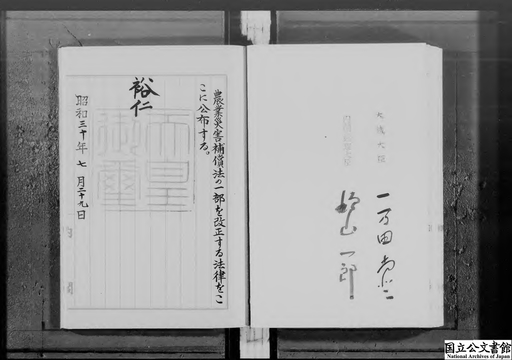 大蔵大臣
一万田尚登
一郎
農業災害補償法の一部を改正する法律をこ
こに公布する。
裕仁
天皇
御璽
昭和三十年七月二十九日
国立公文書館
National Archives of Japan